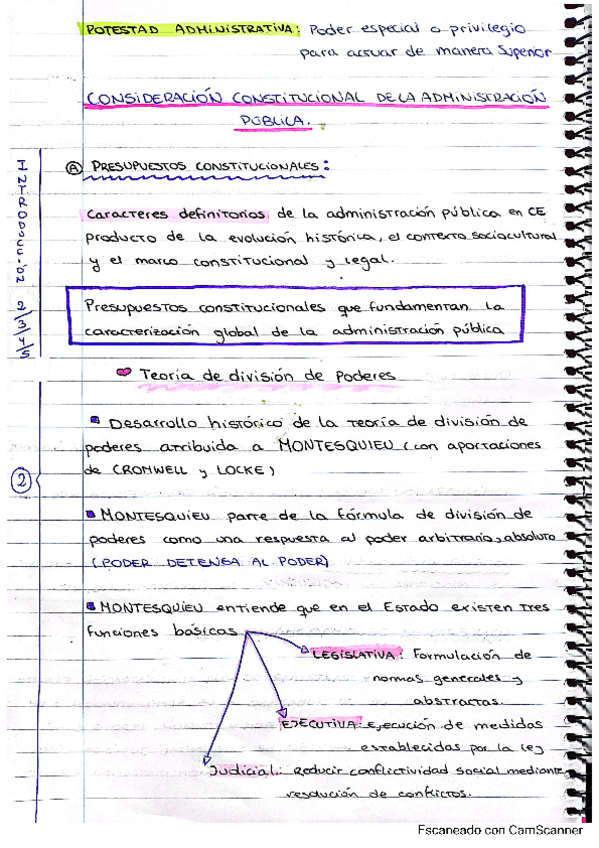 POTESTAD ADMINISTRATIVA: Poder especial o privilegio
para actuar de manera superior
CONSIDERACIÓN CONSTITUCIONAL DE LA ADMINISTRACIÓN
PÚBLICA.
A PRESUPUESTOS CONSTITUCIONALES:
Caracteres definitorios de la administración pública en CE
producto de la evolución histórica, el contexto sociocultural
y el marco constitucional y legal.
Presupuestos constitucionales que fundamentan la
caracterización global de la administración pública
Teoría de división de poderes
Desarrollo histórico de la teoría de división de
poderes atribuida a MONTESQUIEU (con aportaciones
de CROMWELL y LOCKE)
2
MONTESQUIEU parte de la fórmula de división de
poderes como una respuesta al poder arbitrario, absoluto
(PODER DETENGA AL PODER)
MONTESQUIEU entiende que en el Estado existen tres
funciones básicas
LEGISLATIVA: Formulación de
normas generales y
abstractas.
EJECUTIVA: Ejecución de medidas
establecidas por la ley
Judicial: Reducir conflictividad social mediante
resolución de conflictos.
Escaneado con CamScanner